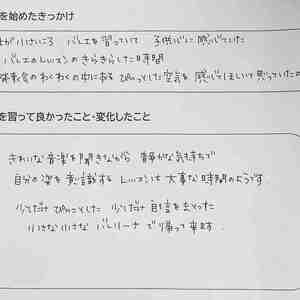 を始めたきっかけ
が小さいころ バレエを習っていて 子供心に感じていた
バレエのレッスンのきらきらした時間
発表会のわくわくの中にある ぴりっとした空気を 感じてほしいと思っていた
を習って良かったこと・変化したこと
きれいな音楽を聞きながら 静かな気持ちで
自分の姿を意識する レッスンは 大事な時間のようです.
少しだけ ぴりっとした 少しだけ自信をまとった
小さな小さな バレリーナ で帰って来ます.